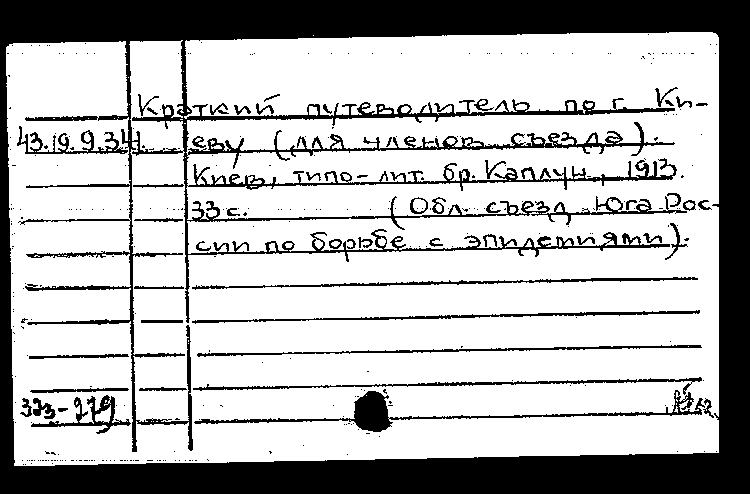 Краткий путеводитель по г. Ки-
43.19.9.341. еву (для членов съезда).
Киев, типо-лит. бр. Каплун, 1913.
33 с. (Обл. съезд Юга Рос-
сии по борьбе с эпидемиями).
323-279